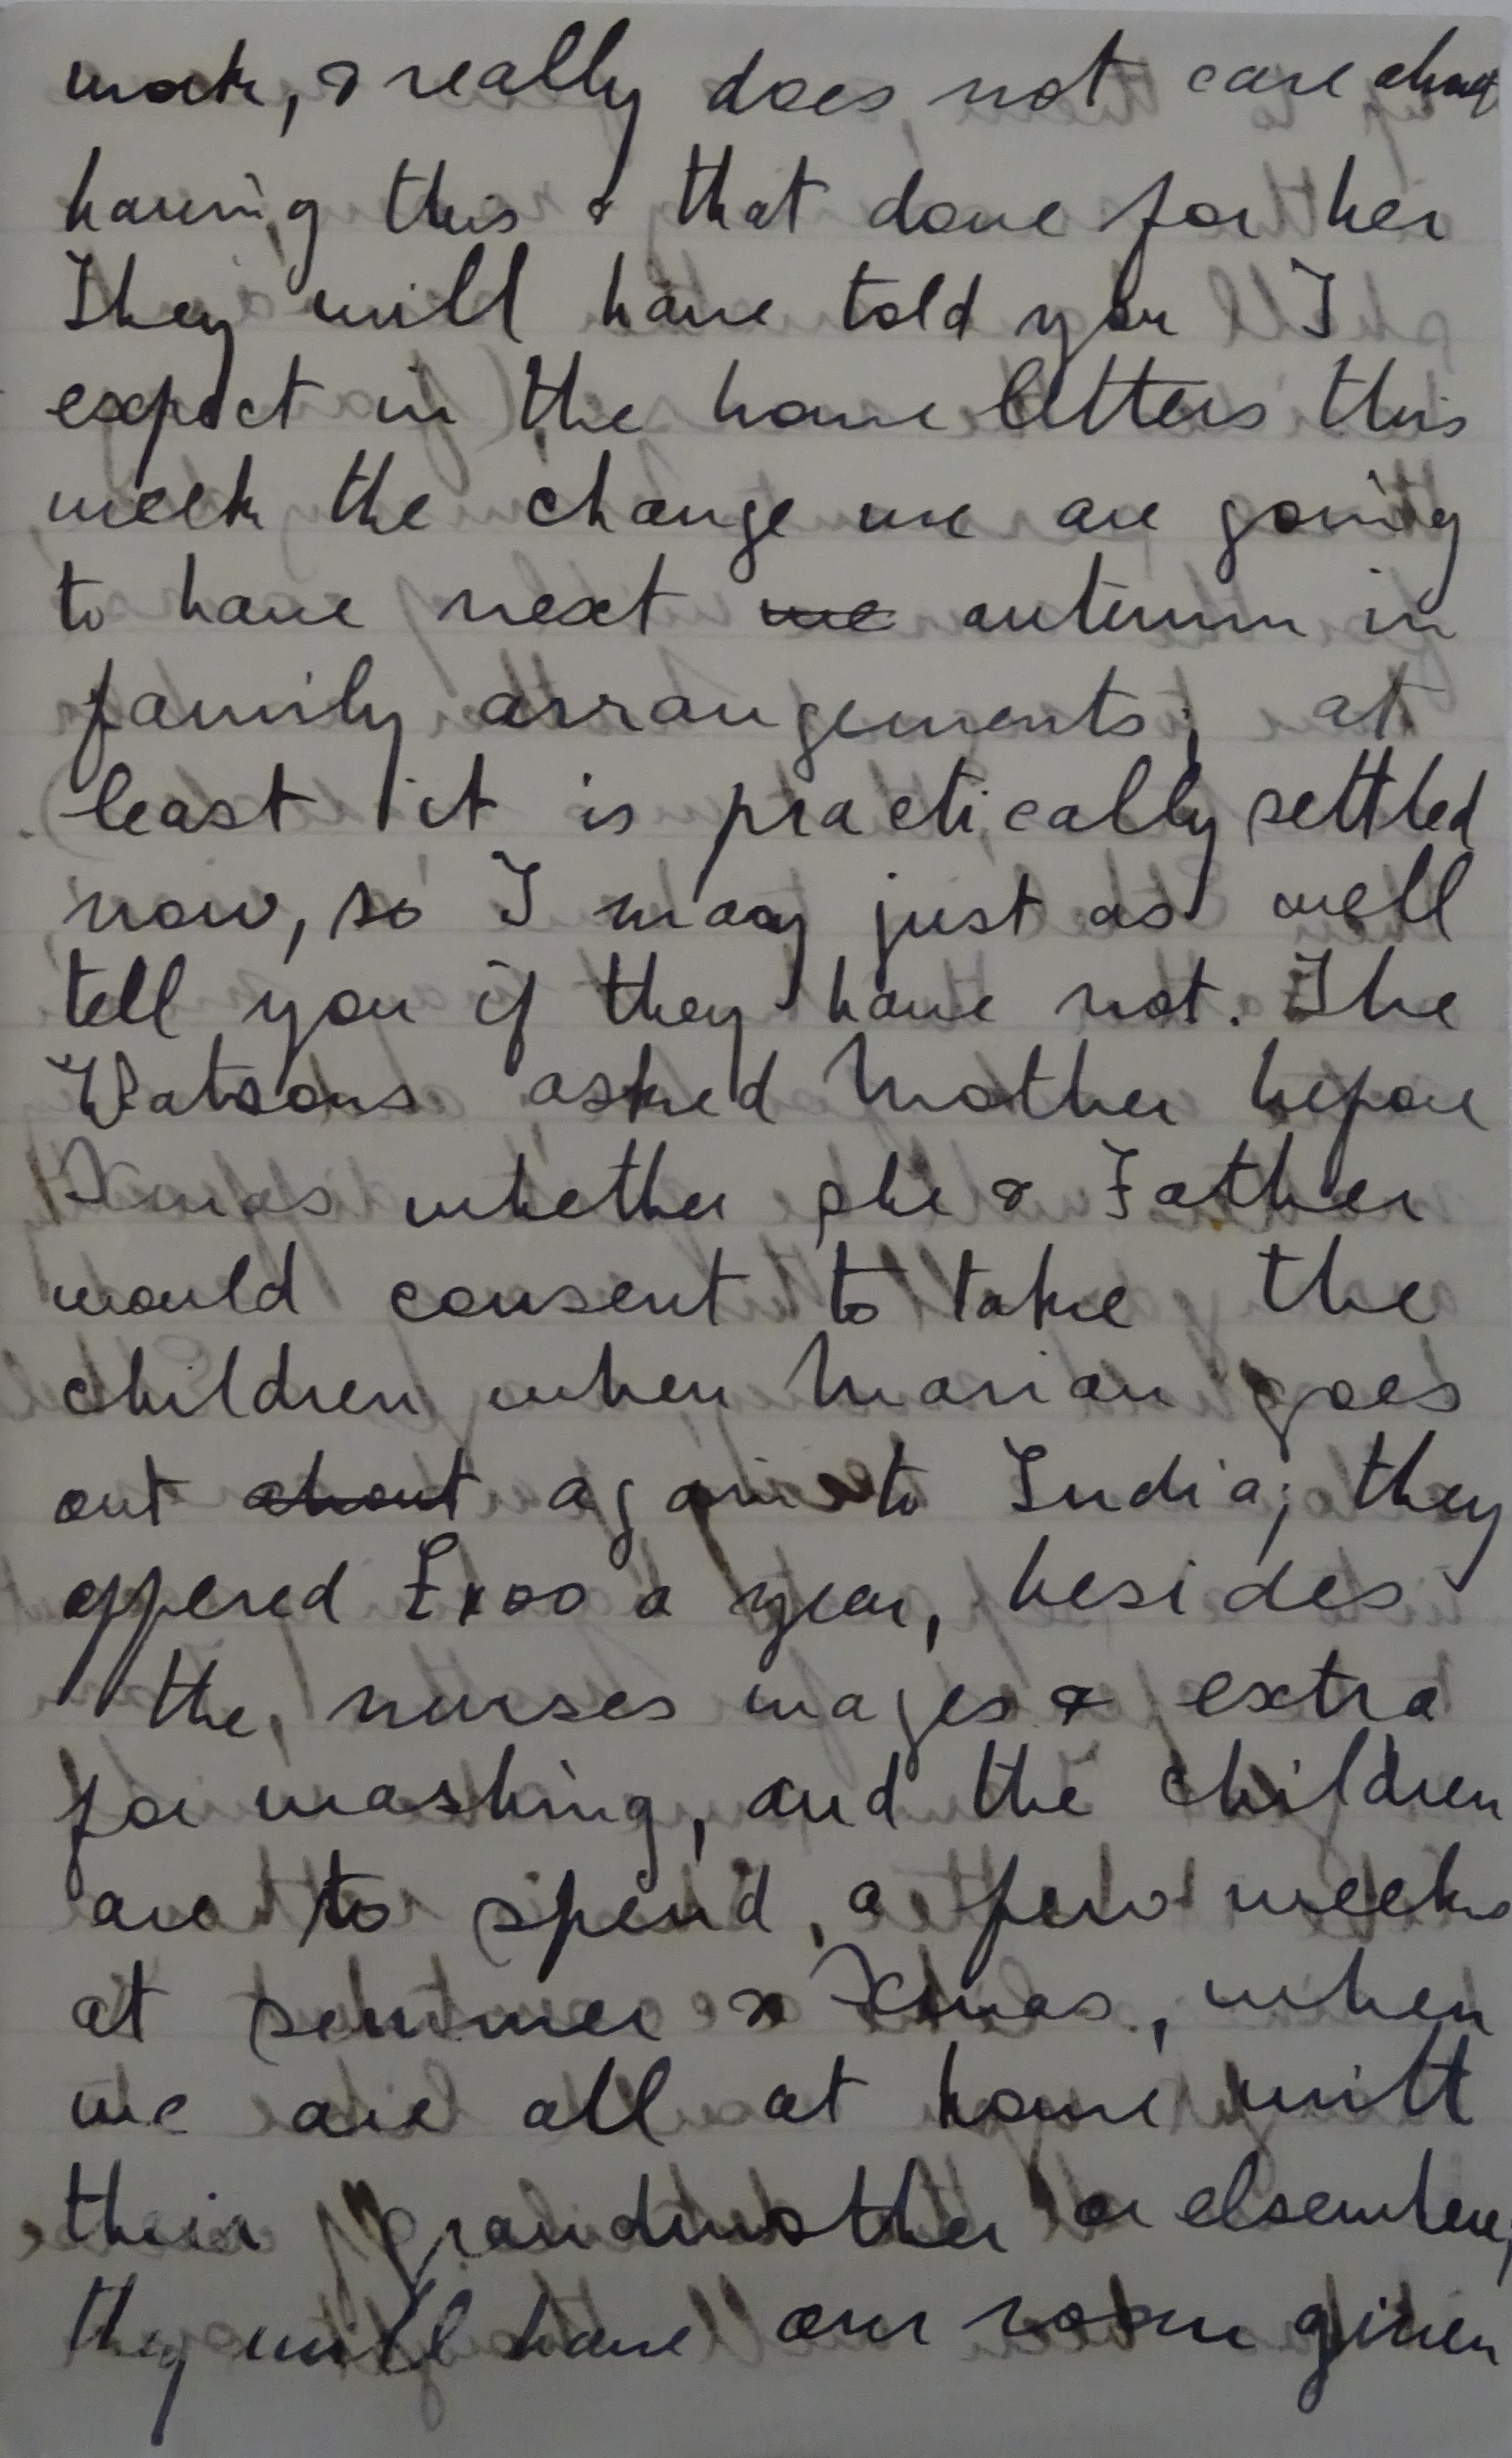 work, & really does not care about
having this & that done for her
They will have told you I
expect in the home letters this
week the change we are going
to have next we autumn in
family arrangements; at
least it is practically settled
now, so I may just as well
tell you if they have not. The
Watsons asked Mother before
Xmas whether she & Father
would consent to take the
children when Marian goes
out about again to India; they
offered £100 a year, besides
the nurses wages & extra
for washing, and the children
are to spend a few weeks
at summer & Xmas, when
we are all at home with
their grandmother or elsewhere,
they will have our room given